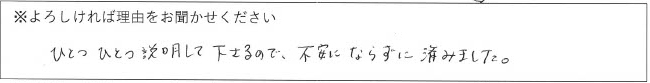 ※よろしければ理由をお聞かせください
ひとつひとつ説明して下さるので、不安にならずに済みました。